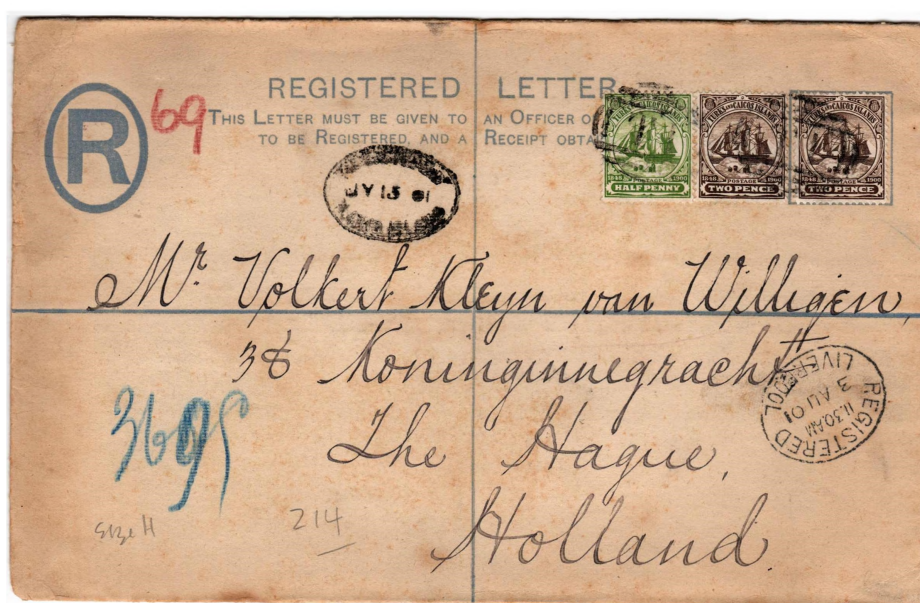 REGISTERED LETTER
THIS LETTER MUST BE GIVEN TO AN OFFICER O
TO BE REGISTERED, AND A RECEIPT OBTA
R
69
JY 15 01
TURKS AND CAICOS ISLANDS
1848 POSTAGE 1900
HALF PENNY
TURKS AND CAICOS ISLANDS
1848 POSTAGE 1900
TWO PENCE
TURKS AND CAICOS ISLANDS
1848 POSTAGE 1900
TWO PENCE
Mr. Volkert Kleyn van Willigen,
Koninginnegracht
The Hague,
Holland
REGISTERED
11.30 AM
3 AU 01
LIVERPOOL
214